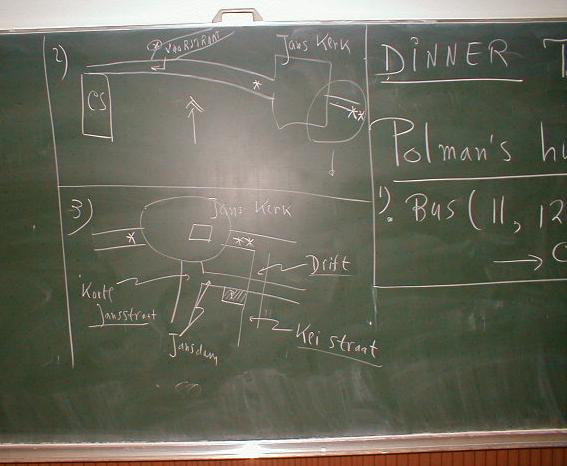 2)
Jans Kerk
CS
*
**
3)
Jans Kerk
*
**
Drift
Korte
Jansstraat
Jansdam
Keistraat
DINNER T
Polman's hu
1). BUS (11, 12
→